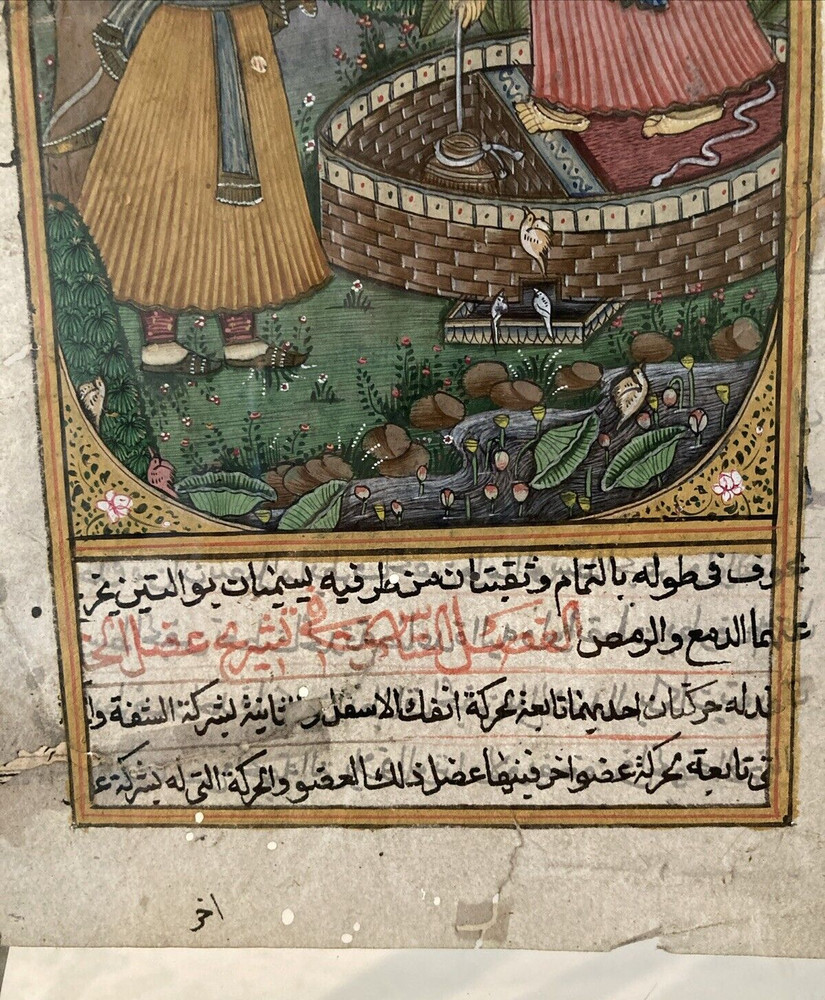 ضروف فى طوله بالتمام وثقبتان من طرفيه يسيمتان بوالتين يخر
عنهما الدمع والرمص الفصل السادس فى تشريح عضل الخ
خدله حركتان احديهما تابعة لحركة الفك الاسفل و الثانية بشركة الشفة وا
تى تابعة لحركة عضو اخر فسببها عضل ذلك العضو والحركة التى له بشركة ع
اخر